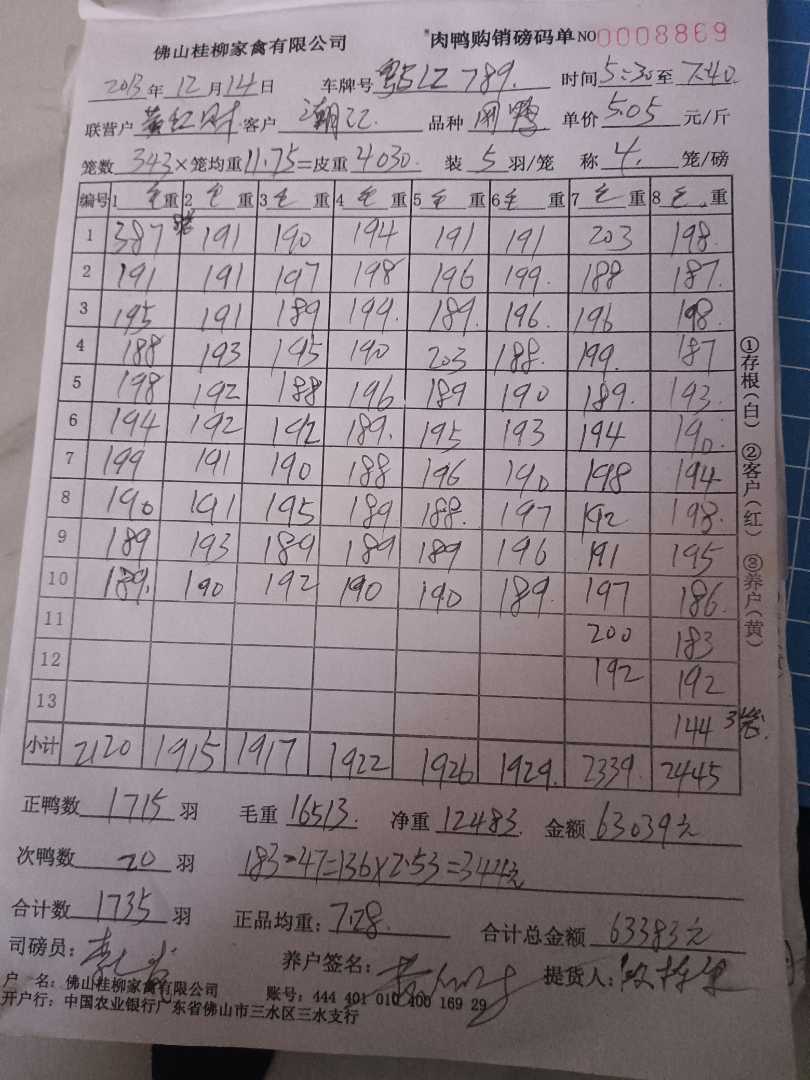 佛山桂柳家禽有限公司 *肉鸭购销磅码单 NO 0008869
2013年12月14日 车牌号 粤 789. 时间 5:30至7:40
联营户 黄红 客户 潮 品种 肉鸭 单价 5.05 元/斤
笼数 343×笼均重 11.75=皮重 4030. 装 5 羽/笼 称 4. 笼/磅
编号 1 毛重 2 毛重 3 毛重 4 毛重 5 毛重 6 毛重 7 毛重 8 毛重
1 387 191 190 194 191 191 203 198.
2 191 191 197 198 196 199. 188 187.
3 195 191 189 194. 189. 196. 196 198.
4 188 193 195 190 203 188. 199. 187
5 198 192 188 196 189 190 189. 193.
6 194 192 192 189. 195 193 194 190.
7 199 191 190 188 196 190 198 194
8 190 191 195 189 188. 197 192 198.
9 189 193 189 189 189 196 191 195
10 189. 190 192 190 190 189. 197 186.
11 200 183
12 192 192
13 144 3笼.
小计 2120 1915 1917 1922 1926 1929. 2339. 2445
正鸭数 1715 羽 毛重 16513. 净重 12483. 金额 63039元
次鸭数 20 羽 183-47=136×2.53=344元
合计数 1735 羽 正品均重: 7.28. 合计总金额 63383元
司磅员: 养户签名: 提货人:
户 名: 佛山桂柳家禽有限公司 账号: 444 401 010 400 169 29
开户行: 中国农业银行广东省佛山市三水区三水支行
①存根(白) ②客户(红) ③养户(黄)